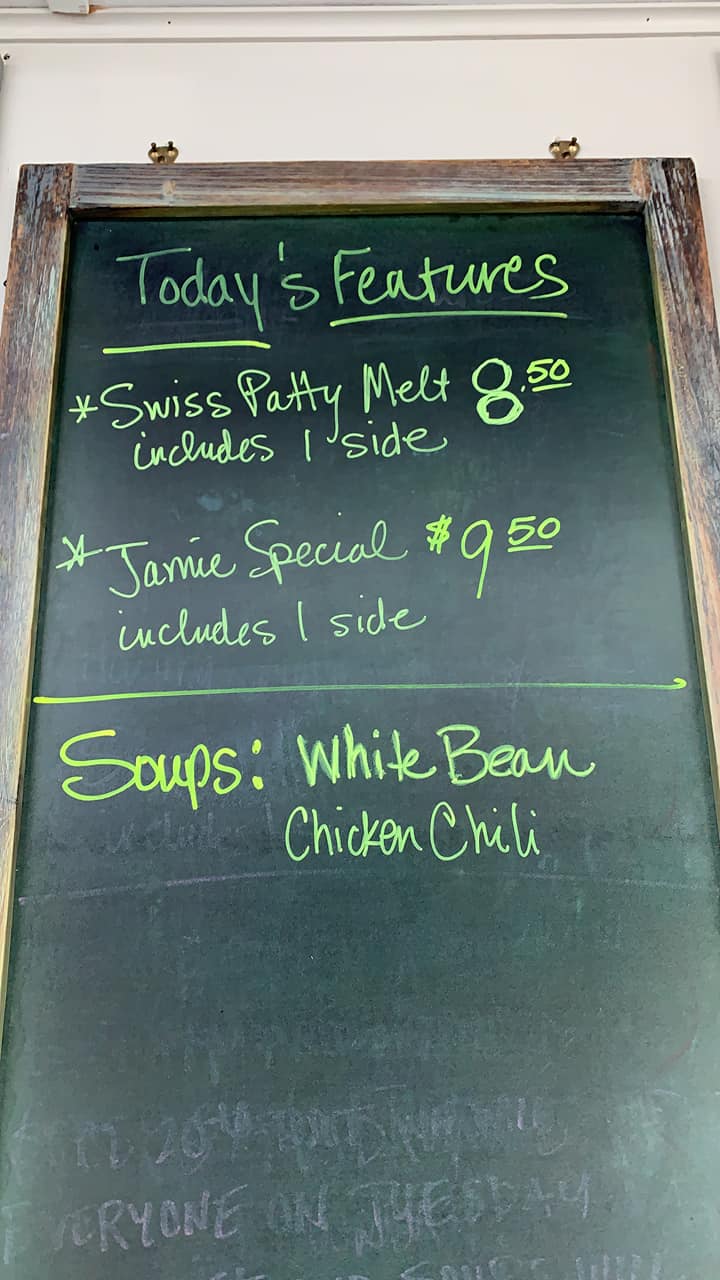 Today's Features
*Swiss Patty Melt 8.50
includes 1 side
*Jamie Special $9 50
includes 1 side
Soups: White Bean
Chicken Chili
EVERYONE ON TUESDAY